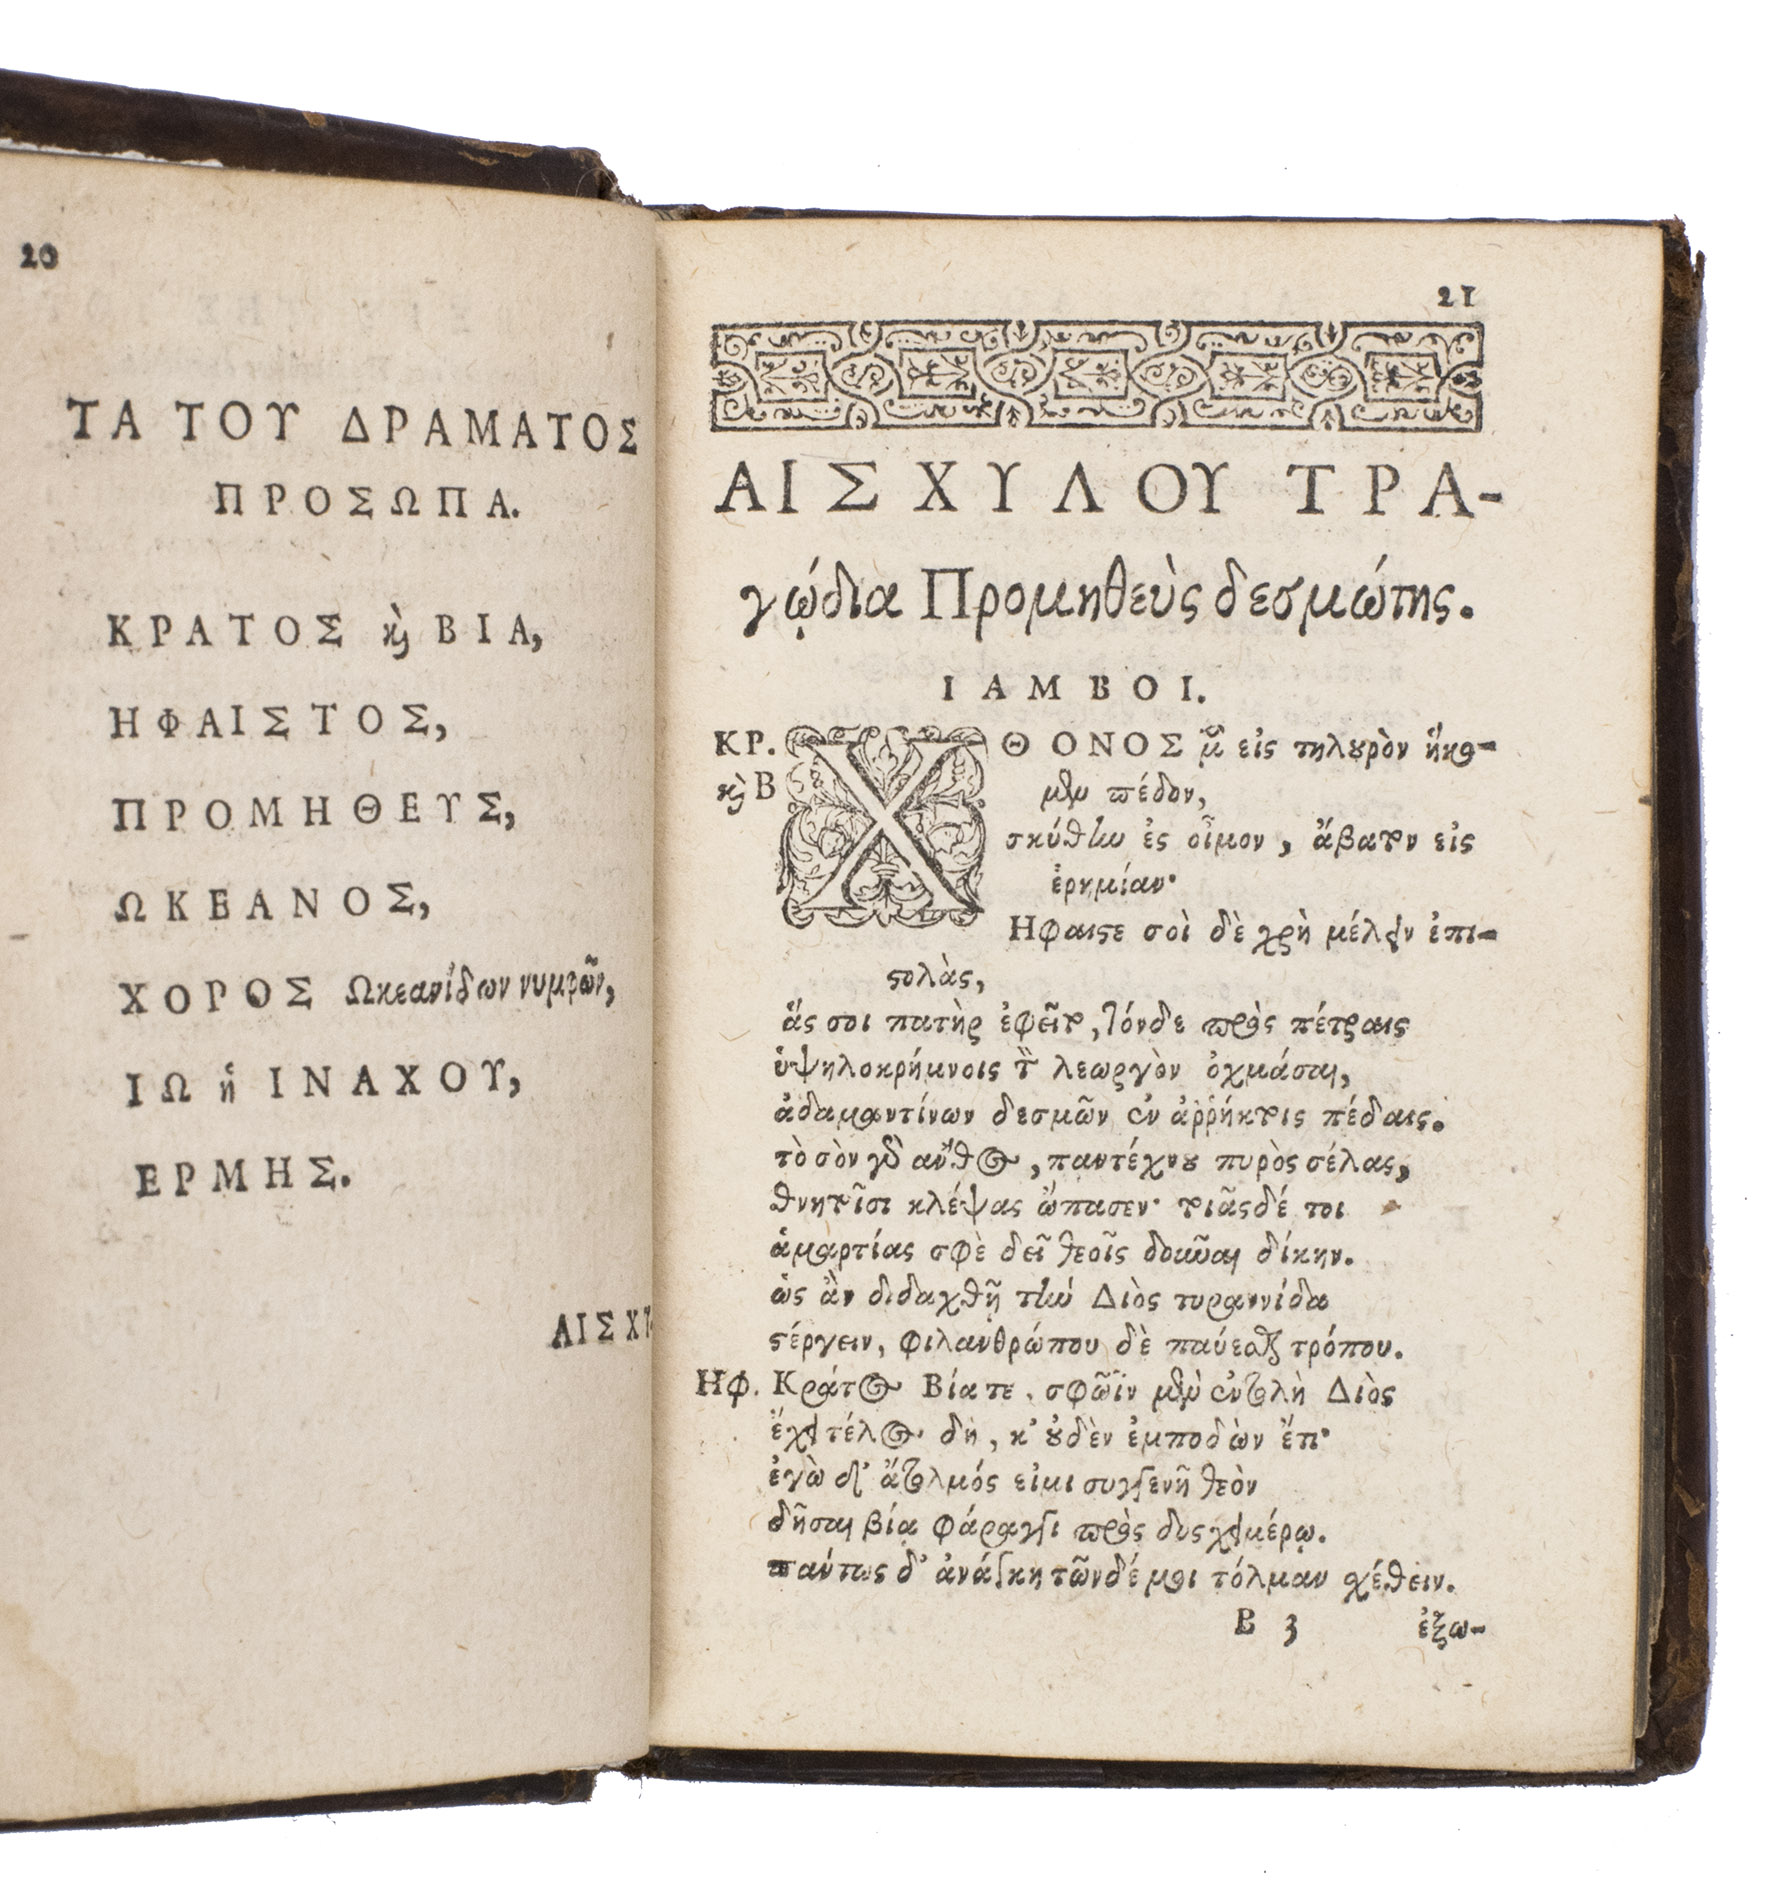 20
ΤΑ ΤΟΥ ΔΡΑΜΑΤΟΣ
ΠΡΟΣΩΠΑ.
ΚΡΑΤΟΣ κὶ ΒΙΑ,
ΗΦΑΙΣΤΟΣ,
ΠΡΟΜΗΘΕΥΣ,
ΩΚΕΑΝΟΣ,
ΧΟΡΟΣ Ωκεανίδων νυμφῶν,
ΙΩ ἡ ΙΝΑΧΟΥ,
ΕΡΜΗΣ.
ΑΙΣΧΥ-
21
ΑΙΣΧΥΛΟΥ ΤΡΑ-
γῳδία Προμηθεὺς δεσμώτης.
ΙΑΜΒΟΙ.
ΚΡ. ΧΘΟΝΟΣ μὲν εἰς τηλουρὸν ἥκο-
κὶ Β μεν πέδον,
σκύθην ἐς οἶμον, ἄβατον εἰς
ἐρημίαν·
Ηφαιστε σοὶ δὲ χρὴ μέλειν ἐπι-
στολὰς,
ἅς σοι πατὴρ ἐφεῖτο, τόνδε πρὸς πέτραις
ὑψηλοκρήμνοις τὸν λεωργὸν ὀχμάσαι,
ἀδαμαντίνων δεσμῶν ἐν ἀῤῥήκτοις πέδαις.
τὸ σὸν γὰρ ἄνθος, παντέχνου πυρὸς σέλας,
θνητοῖσι κλέψας ὤπασεν· τοιᾶσδέ τοι
ἁμαρτίας σφὲ δεῖ θεοῖς δοῦναι δίκην.
ὡς ἂν διδαχθῇ τὴν Διὸς τυραννίδα
στέργειν, φιλανθρώπου δὲ παύεσθαι τρόπου.
Ηφ. Κράτος Βία τε, σφῶϊν μὲν ἐντολὴ Διὸς
ἔχει τέλος δὴ, κ' οὐδὲν ἐμποδὼν ἔτι·
ἐγὼ δ' ἄτολμός εἰμι συγγενῆ θεὸν
δῆσαι βίᾳ φάραγγι πρὸς δυσχειμέρῳ.
πάντως δ' ἀνάγκη τῶνδέ μοι τόλμαν σχέθειν.
B 3 ἐξω-